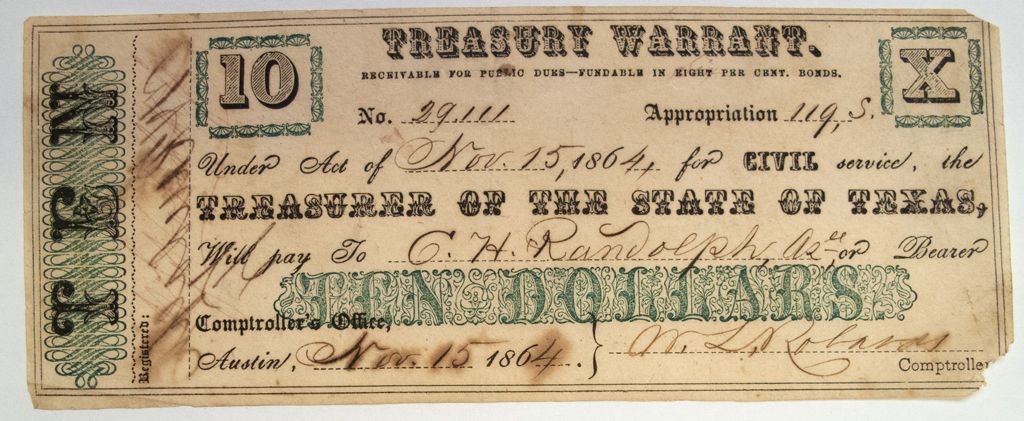 TEN
Registered:
10
TREASURY WARRANT.
X
RECEIVABLE FOR PUBLIC DUES—FUNDABLE IN EIGHT PER CENT. BONDS.
No. 29111 Appropriation 119, S.
Under Act of Nov. 15, 1864, for CIVIL service, the
TREASURER OF THE STATE OF TEXAS,
Will pay To C. H. Randolph, or Bearer
TEN DOLLARS
Comptroller's Office,
Austin, Nov. 15 1864.
Comptrolle